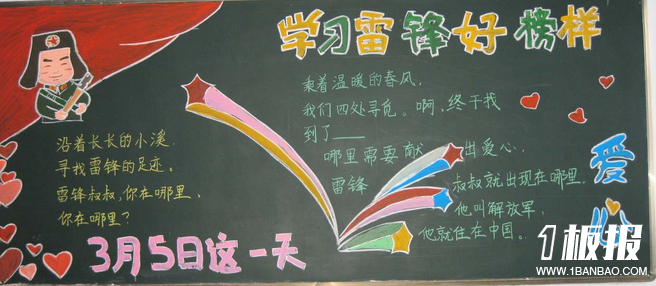 学习雷锋好榜样
沿着长长的小溪，
寻找雷锋的足迹。
雷锋叔叔，你在哪里，
你在哪里？
乘着温暖的春风，
我们四处寻觅。啊，终于找
到了——
哪里需要献出爱心，
雷锋叔叔就出现在哪里。
他叫解放军，
他就住在中国。
爱心
3月5日这一天
1板报
WWW.1BANBAO.COM